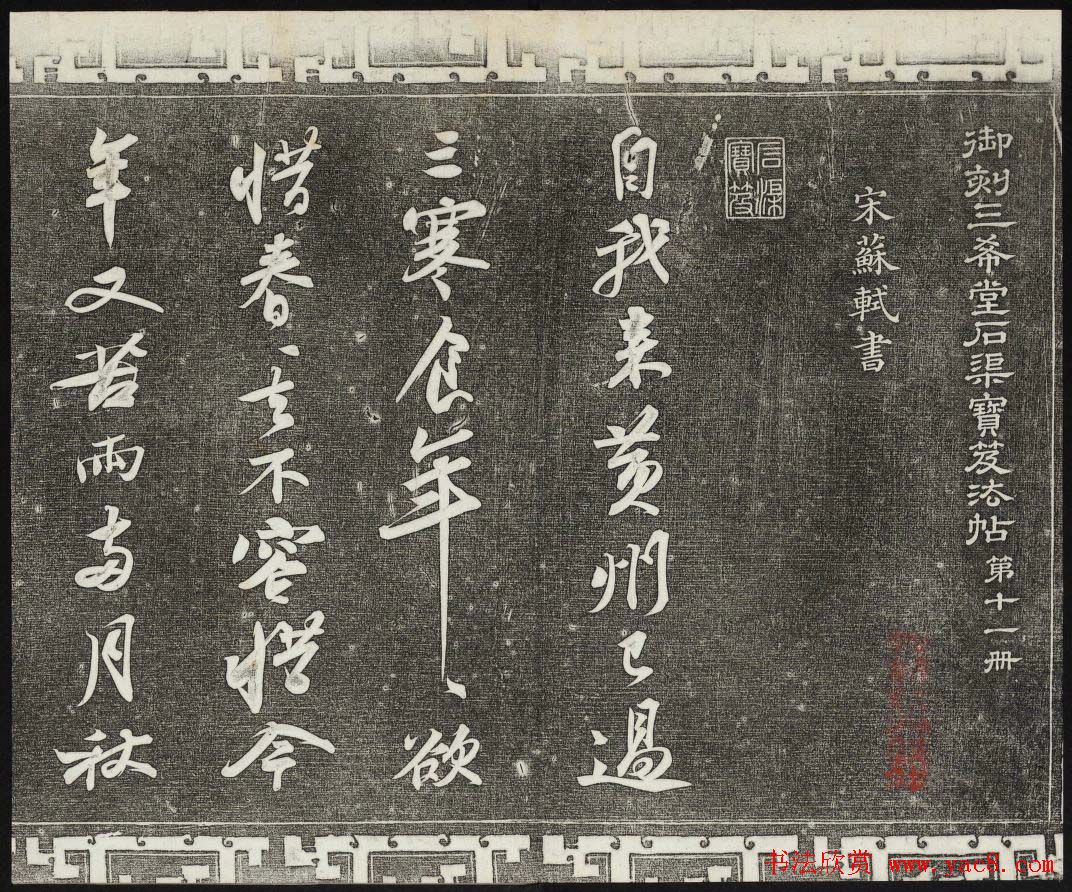 御刻三希堂石渠寶笈法帖 第十一冊
宋蘇軾書
石渠寶笈
自我来黄州已過
三寒食年〻欲
惜春〻去不容惜今
年又苦雨兩月秋
书法欣赏 www.yac8.com